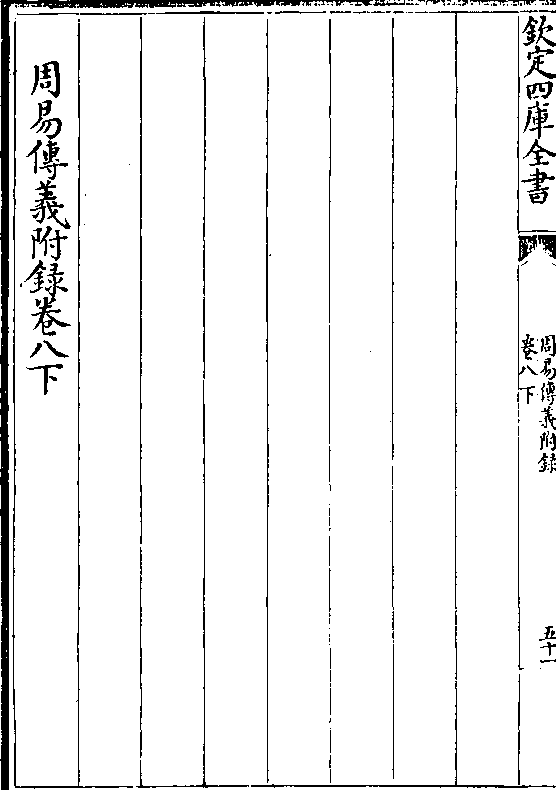 欽定四庫全書
周易傳義附錄
卷八下
五十一
周易傳義附錄卷八下